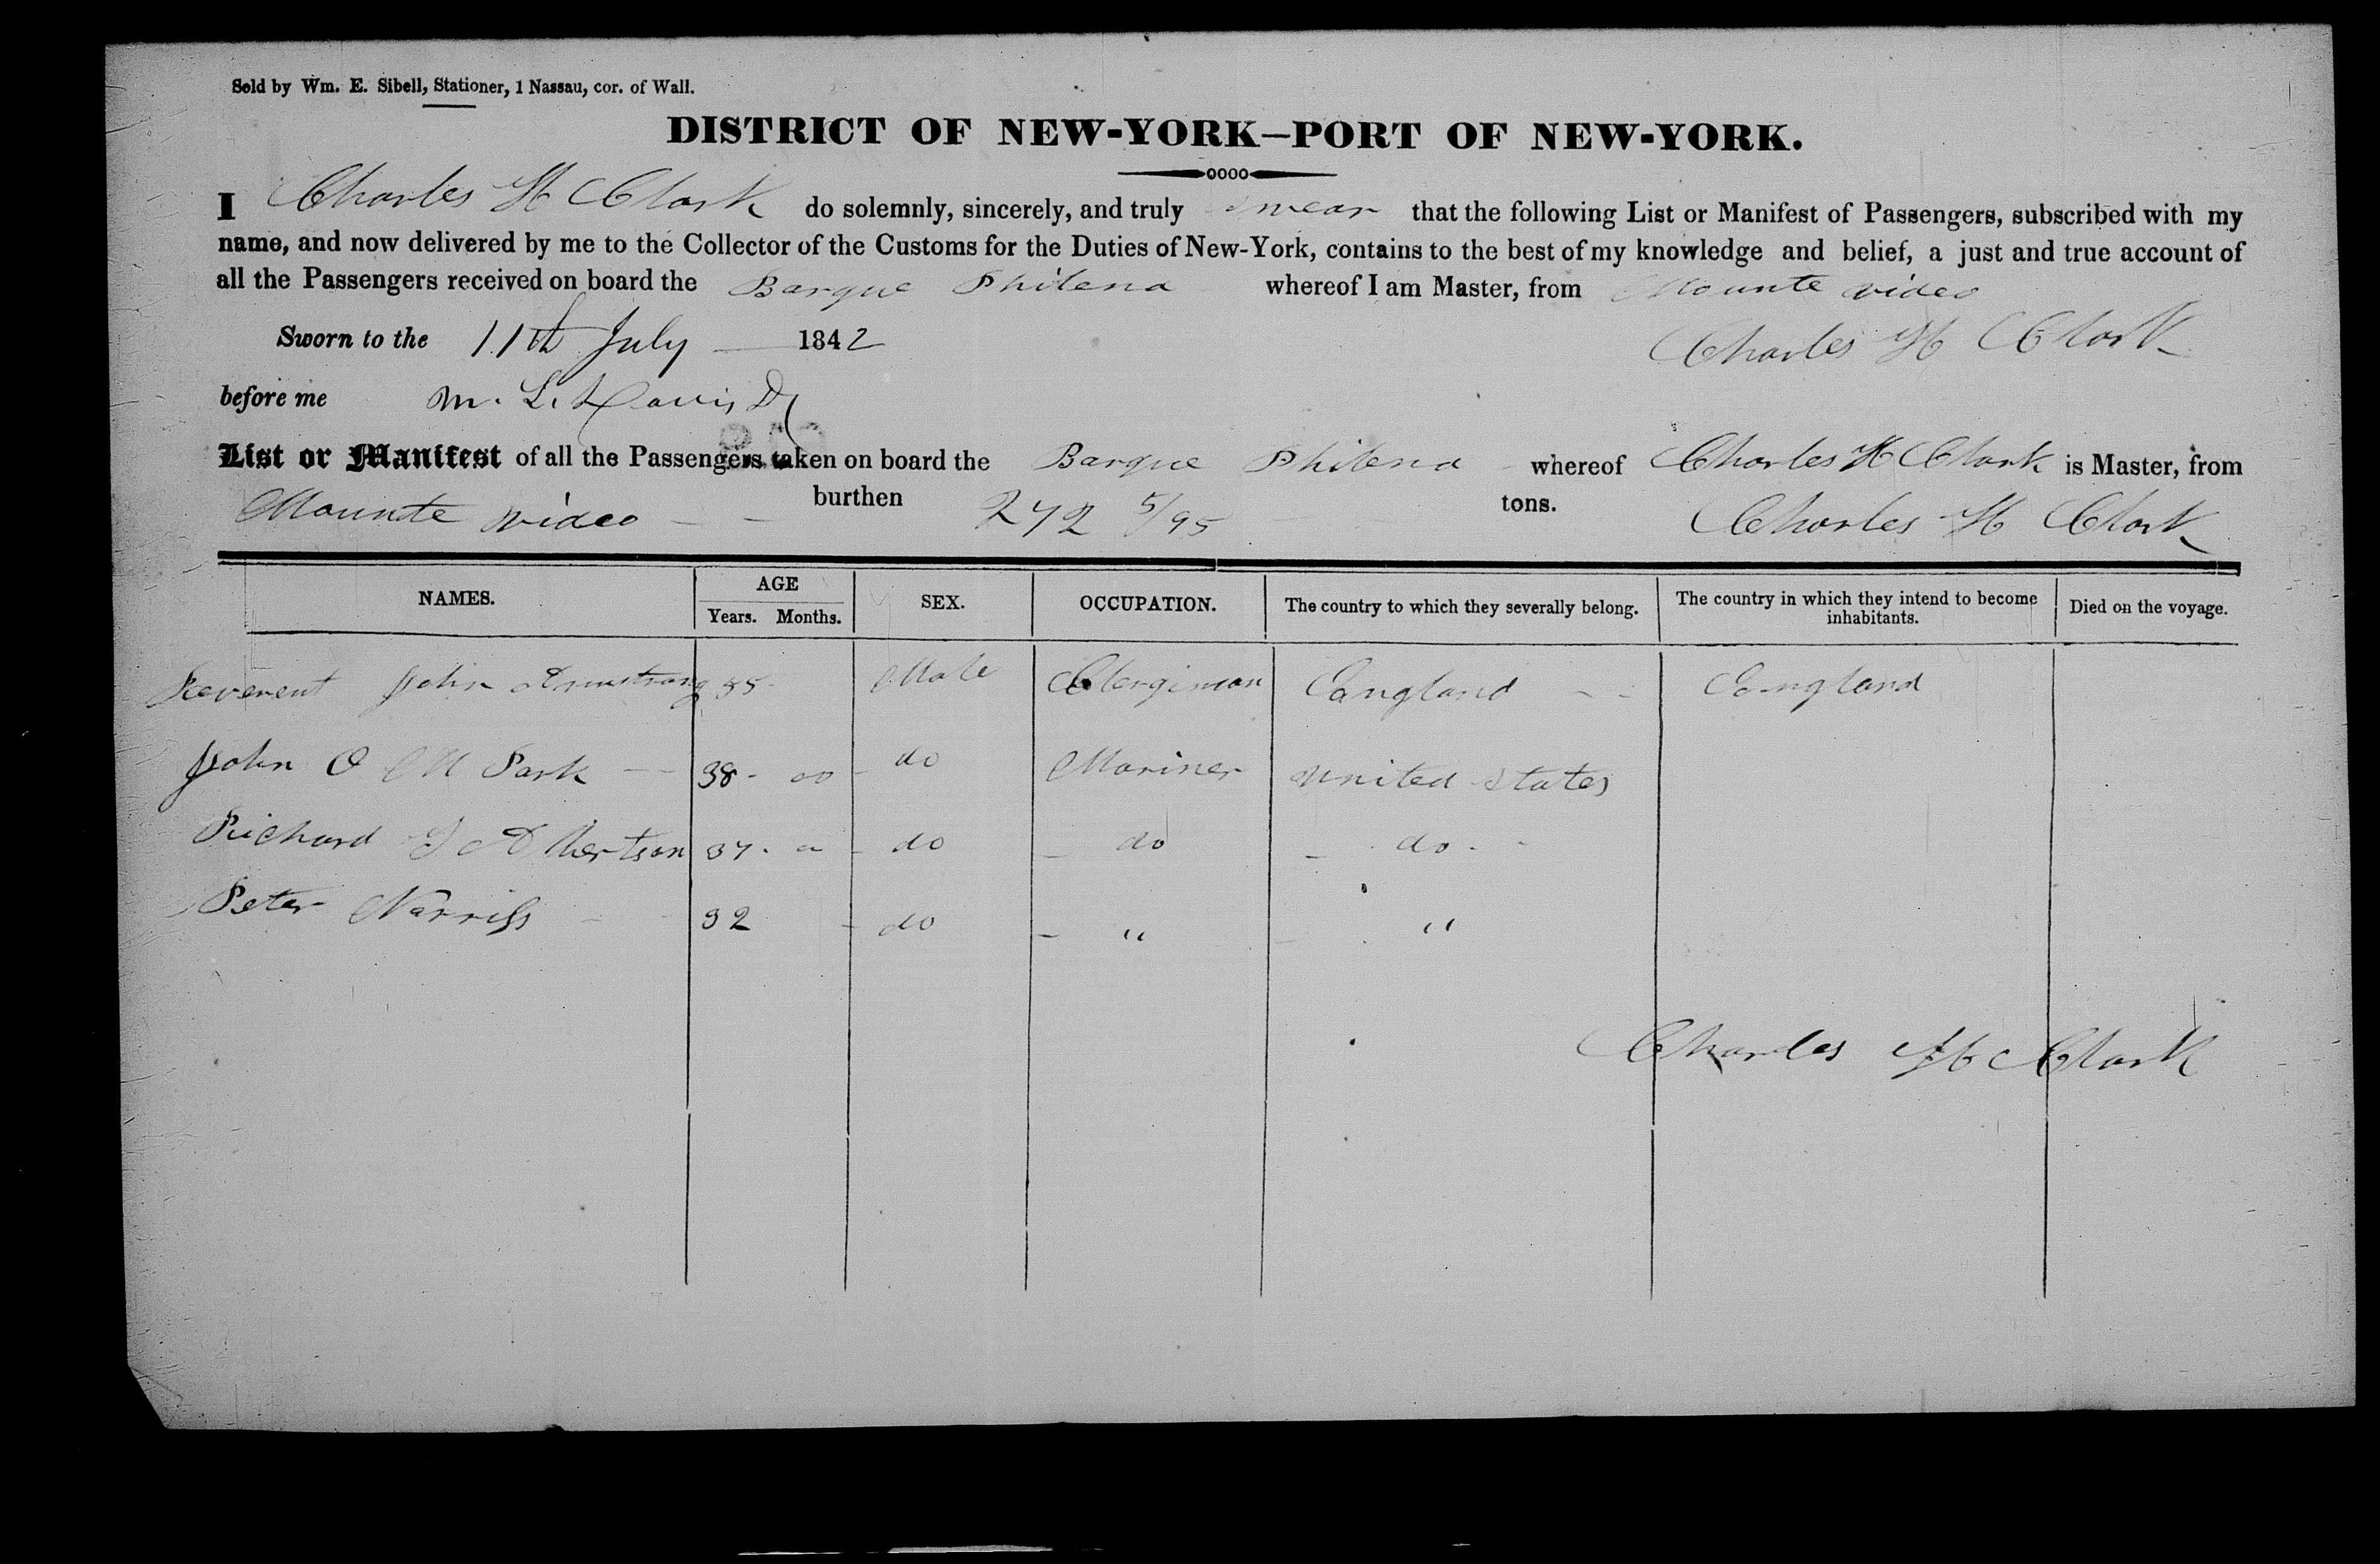 Sold by Wm. E. Sibell, Stationer, 1 Nassau, cor. of Wall.
DISTRICT OF NEW-YORK—PORT OF NEW-YORK.
I Charles H Clark do solemnly, sincerely, and truly swear that the following List or Manifest of Passengers, subscribed with my
name, and now delivered by me to the Collector of the Customs for the Duties of New-York, contains to the best of my knowledge and belief, a just and true account of
all the Passengers received on board the Barque Philena whereof I am Master, from Mounte video
Sworn to the 11th July 1842 Charles H Clark
before me M. L. Davis
List or Manifest of all the Passengers taken on board the Barque Philena whereof Charles H Clark is Master, from
Mounte video burthen 272 5/95 tons. Charles H Clark
NAMES. AGE Years. Months. SEX. OCCUPATION. The country to which they severally belong. The country in which they intend to become inhabitants. Died on the voyage.
Reverent John Armstrong 35 Male Clergiman England England
John O M Park 38 - 00 do Mariner United States
Richard Albertson 37 - do do do
Peter Norriss 32 do " "
Charles H Clark